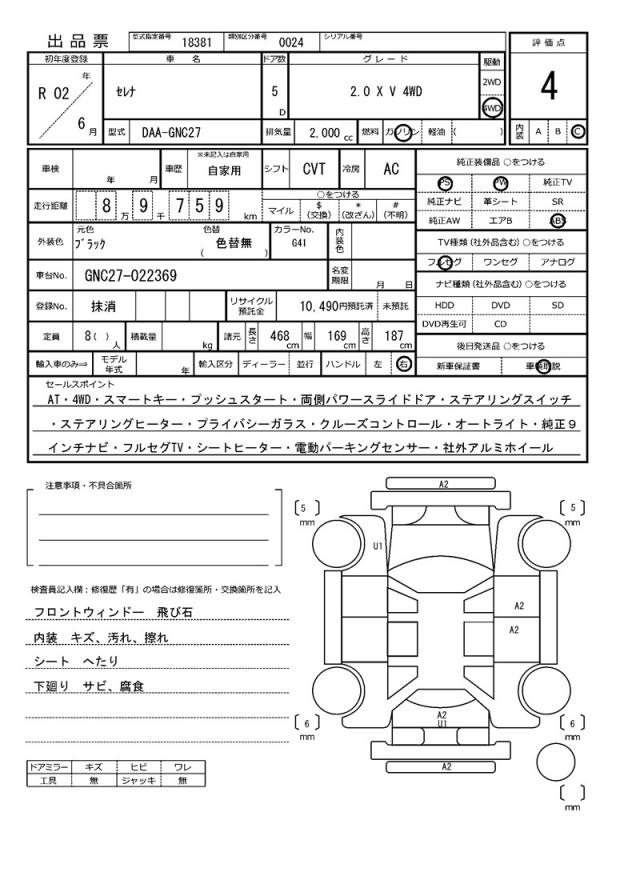 出品票
型式指定番号 18381 類別区分番号 0024 シリアル番号
評価点
初年度登録 車名 ドア数 グレード 駆動
R 02 年 6 月
セレナ
5 D
2.0 X V 4WD
2WD
4WD
4
型式 DAA-GNC27 排気量 2,000 cc 燃料 ガソリン 軽油 ( )
内装 A B C
車検 年 月 車歴 ※未記入は自家用 自家用 シフト CVT 冷房 AC
純正装備品 ○をつける
PS PW 純正TV
純正ナビ 革シート SR
純正AW エアB ABS
走行距離 8 万 9 千 7 5 9 km
○をつける
マイル $ (交換) * (改ざん) # (不明)
TV種類 (社外品含む) ○をつける
フルセグ ワンセグ アナログ
外装色 元色 ブラック 色替 ( 色替無 ) カラーNo. G41 内装色
ナビ種類 (社外品含む) ○をつける
HDD DVD SD
DVD再生可 CD
車台No. GNC27-022369 名変期限 月 日
登録No. 抹消 リサイクル預託金 10,490円預託済 未預託
定員 8( ) 人 積載量 kg 諸元 長さ 468 cm 幅 169 cm 高さ 187 cm
後日発送品 ○をつける
新車保証書 車輌取説
輸入車のみ⇒ モデル年式 年 輸入区分 ディーラー 並行 ハンドル 左 右
セールスポイント
AT・4WD・スマートキー・プッシュスタート・両側パワースライドドア・ステアリングスイッチ
・ステアリングヒーター・プライバシーガラス・クルーズコントロール・オートライト・純正9
インチナビ・フルセグTV・シートヒーター・電動パーキングセンサー・社外アルミホイール
注意事項・不具合箇所
A2
5 mm
5 mm
U1
A2
A2
検査員記入欄：修復歴「有」の場合は修復箇所・交換箇所を記入
フロントウィンドー 飛び石
内装 キズ、汚れ、擦れ
シート へたり
下廻り サビ、腐食
A2
U1
6 mm
6 mm
A2
mm
ドアミラー キズ ヒビ ワレ
工具 無 ジャッキ 無